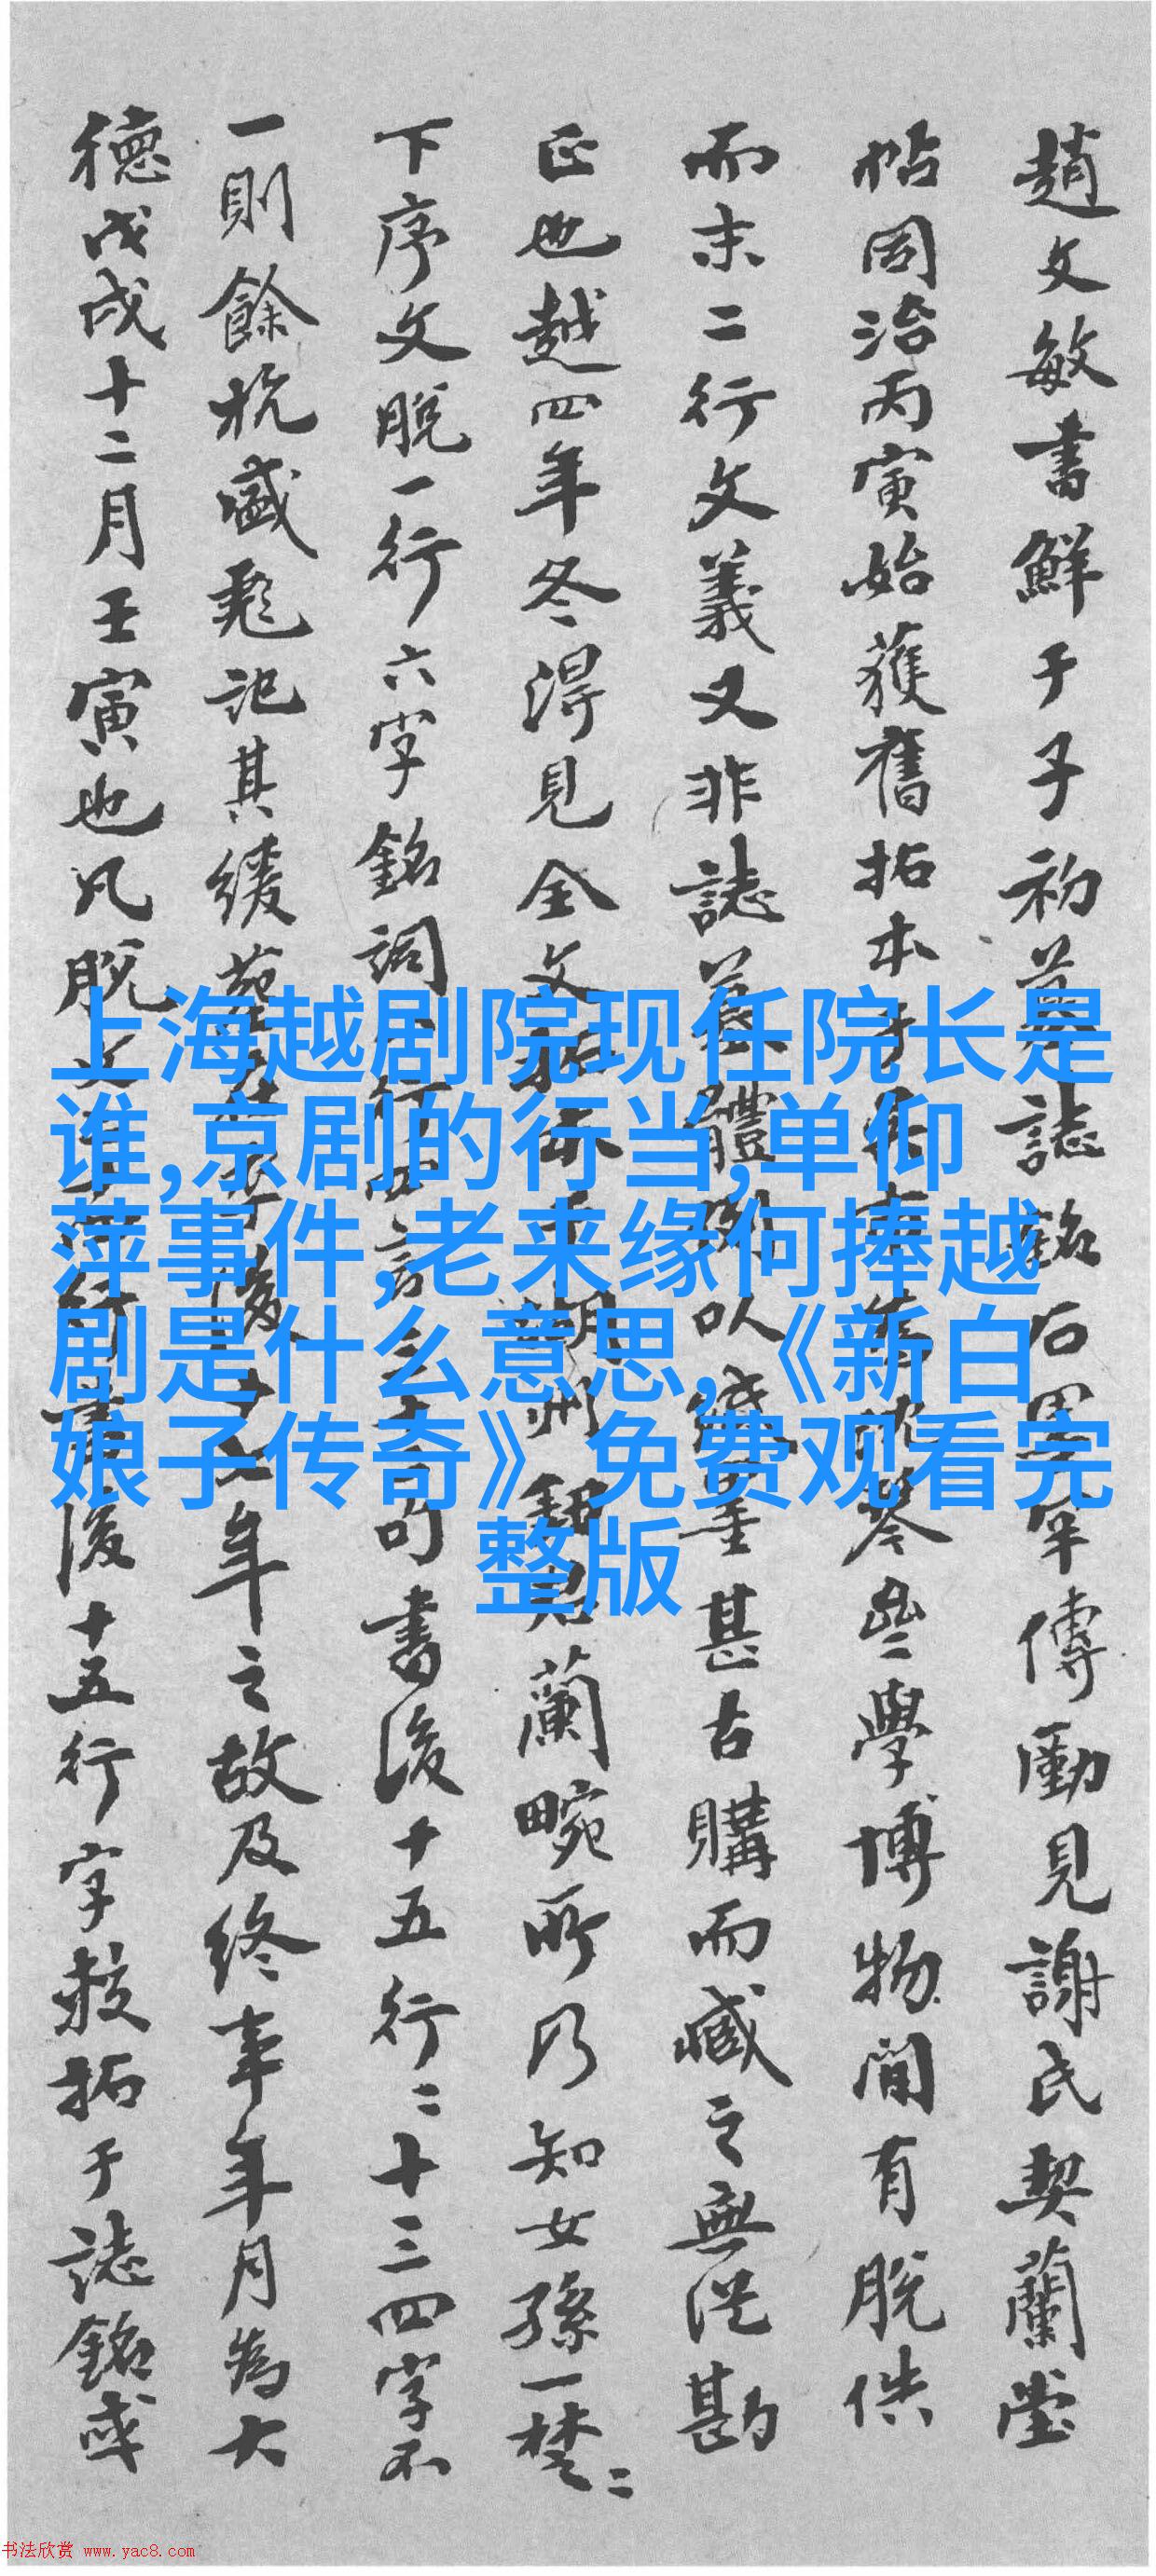 趙文敏書鮮于子初墓誌銘后思牢傳勵見謝氏契蘭堂
帖同治丙寅始獲舊拓本于
學博物間有脫佚
而末二行文義又非誌墓體
以
甚古購而藏之無從勘
正也越四年冬得見全文拓本于湖州
蘭畹所乃知女孫一楚二
下序文脫一行六字銘詞
行四言
句書後十五行二十三四字不
一則餘杭
記其緩
後
年之故及終事年月為大
德戊戌十二月壬寅也凡脫文
行書後十五行字
拓于誌銘或
上海越剧院现任院长是
谁,京剧的行当,单仰
萍事件,老来缘何捧越
剧是什么意思,《新白
娘子传奇》免费观看完
整版
书法欣赏 www.yac8.com